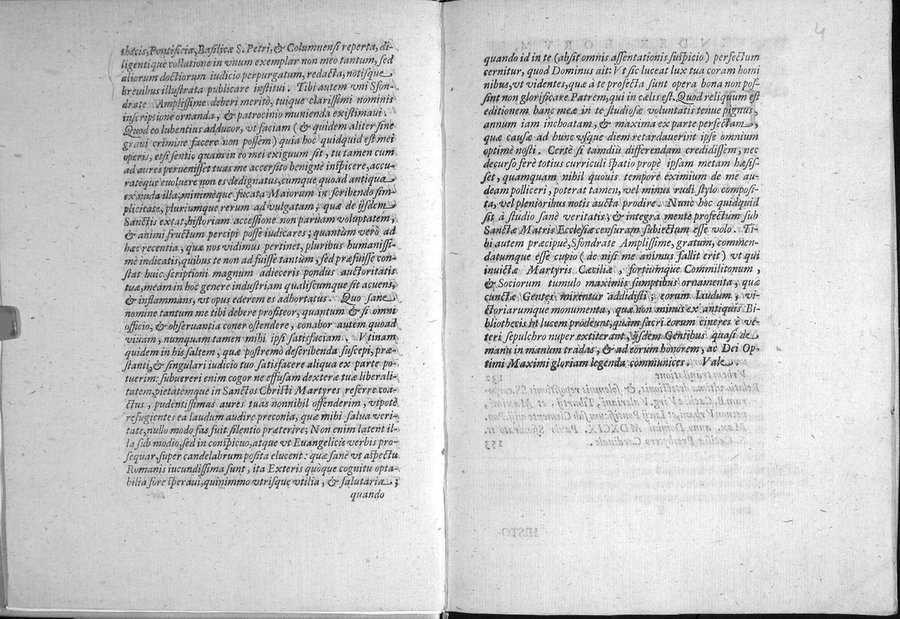 thecis, Pontificia, Basilicæ S. Petri, & Columnensi reperta, di-
ligentique collatione in vnum exemplar non meo tantum, sed
aliorum doctiorum iudicio perpurgatum, redacta, notisque
breuibus illustrata publicare institui. Tibi autem vni Sfon-
drate Amplissime deberi meritò, tuique clarissimi nominis
inscriptione ornanda, & patrocinio munienda existimaui.
Quod eo lubentius adducor, vt faciam (& quidem aliter sine
graui crimine facere non possem) quia hoc quidquid est mei
operis, etsi sentio quam in eo mei exiguum sit, tu tamen cum
ad aures peruenisset tuas me accersito benignè inspicere, accu-
rateque euoluere non es dedignatus, cumque quoad antiqua
ex nuda illa, minimèque fucata Maiorum in scribendo sim-
plicitate, pluriumque rerum ad vulgatam, quæ de ijsdem
Sanctis extat, historiam accessione non paruam voluptatem,
& animi fructum percipi posse iudicares; quantùm verò ad
hæc recentia, quæ nos vidimus pertinet, pluribus humanissi-
mè indicatis, quibus te non adfuisse tantùm, sed præfuisse con-
stat huic scriptioni magnum adieceris pondus auctoritatis
tuæ, meam in hoc genere industriam qualiscumque sit acuens,
& inflammans, vt opus ederem es adhortatus. Quo sane
nomine tantum me tibi debere profiteor, quantum & si omni
officio, & obseruantia coner ostendere, conabor autem quoad
viuam, numquam tamen mihi ipsi satisfaciam. Vtinam
quidem in his saltem, quæ postremò describenda suscepi, præ-
stanti, & singulari iudicio tuo satisfacere aliqua ex parte po-
tuerim: subuereri enim cogor ne effusam dexteræ tuæ liberali-
tatem, pietatemque in Sanctos Christi Martyres referre coa-
ctus, pudentissimas aures tuas nonnihil offenderim, vtpotè
refugientes ea laudum audire preconia, quæ mihi salua veri-
tate, nullo modo fas fuit silentio præterire; Non enim latent il-
la sub modio, sed in conspicuo, atque vt Euangelicis verbis pro-
sequar, super candelabrum posita elucent: quæ sanè vt aspectu
Romanis iucundissima sunt, ita Exteris quoque cognitu opta-
bilia fore speraui, quinimmo vtrisque vtilia, & salutaria;
quando
4
quando id in te (absit omnis assentationis suspicio) perfectum
cernitur, quod Dominus ait: Vt sic luceat lux tua coram homi
nibus, vt videntes, quæ à te profecta sunt opera bona non pos-
sint non glorificare Patrem, qui in cælis est. Quod reliquum est
editionem hanc meæ in te studiosæ voluntatis tenue pignus,
annum iam inchoatam, & maxima ex parte perfectam,
quæ causæ ad hunc vsque diem retardauerint ipse omnium
optimè nosti. Certè si tamdiu differendam credidissem, nec
decurso ferè totius curriculi spatio propè ipsam metam hæsis-
set, quamquam nihil quouis tempore eximium de me au-
deam polliceri, poterat tamen, vel minus rudi stylo composi-
ta, vel plenioribus notis aucta prodire. Nunc hoc quidquid
sit à studio sanè veritatis, & integra mente profectum sub
Sanctæ Matris Ecclesiæ censuram subiectum esse volo. Ti-
bi autem præcipuè, Sfondrate Amplissime, gratum, commen-
datumque esse cupio (de nisi me animus fallit erit) vt qui
inuictæ Martyris Cæciliæ, fortiumque Commilitonum,
& Sociorum tumulo maximis sumptibus ornamenta, quæ
cunctæ Gentes mirentur addidisti; eorum laudum, vi-
ctoriarumque monumenta, quæ non minus ex antiquis Bi-
bliothecis in lucem prodeunt, quàm sacri eorum cineres è ve-
teri sepulchro nuper extiterant, ijsdem Gentibus quasi de
manu in manum tradas, & ad eorum honorem, ac Dei Op-
timi Maximi gloriam legenda communices. Vale.